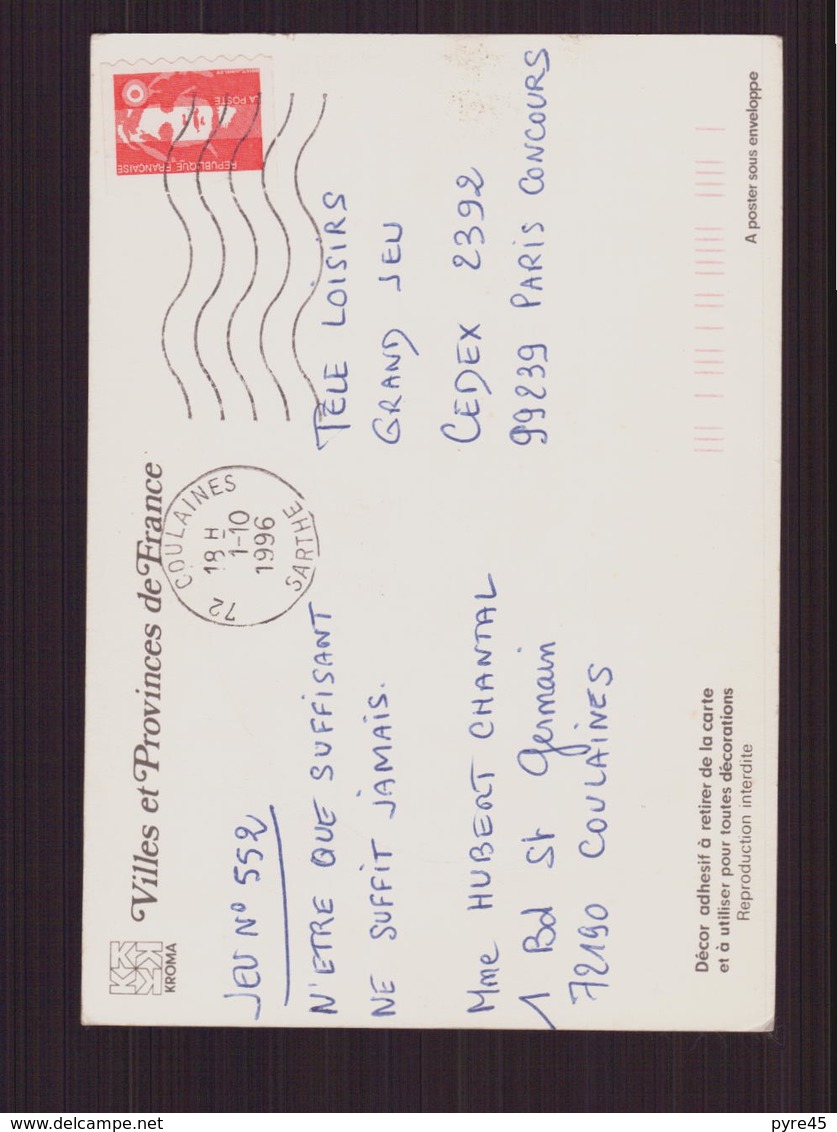 KROMA
Villes et Provinces de France
72 COULAINES
18 H
1-10
1996
SARTHE
LA POSTE
REPUBLIQUE FRANÇAISE
JEU N° 552
N'ETRE QUE SUFFISANT
NE SUFFIT JAMAIS.
Mme HUBERT CHANTAL
1 Bd St Germain
72190 COULAINES
TELE LOISIRS
GRAND JEU
CEDEX 2392
99239 PARIS CONCOURS
Décor adhesif à retirer de la carte
et à utiliser pour toutes décorations
Reproduction interdite
A poster sous enveloppe
www.delcampe.net
pyre45